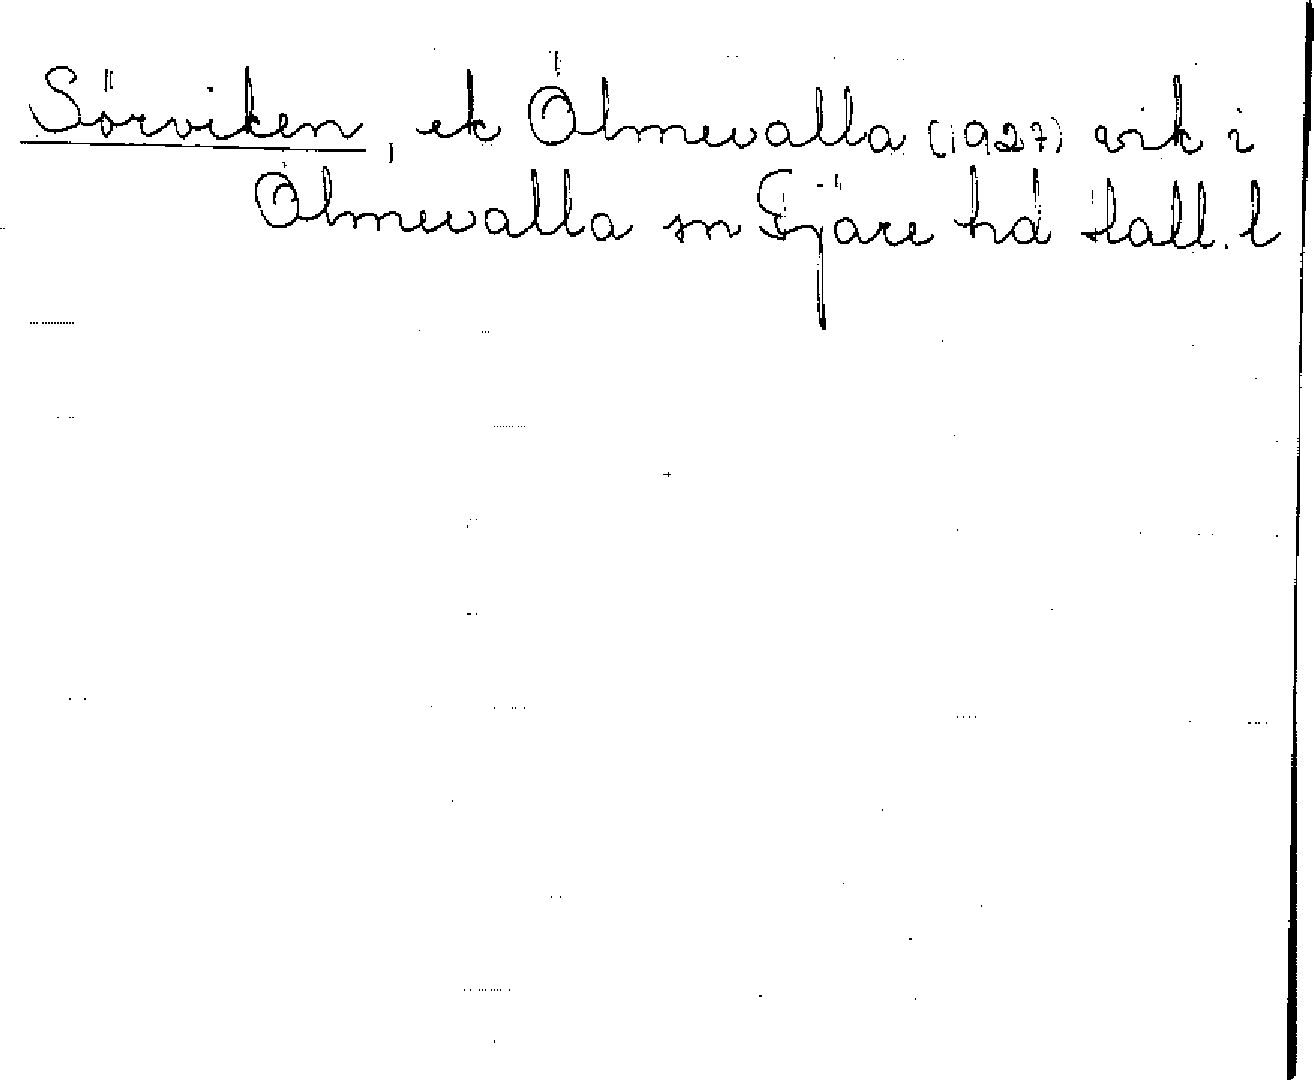 Sörviken, ek Ölmevalla (1927) vik i
Ölmevalla sn Fjäre hd Hall. l